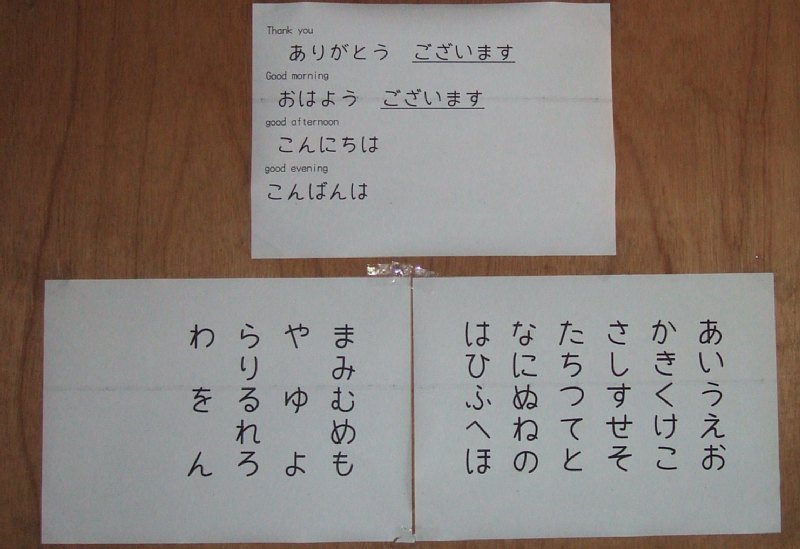 Thank you
ありがとう ございます
Good morning
おはよう ございます
good afternoon
こんにちは
good evening
こんばんは
あいうえお
かきくけこ
さしすせそ
たちつてと
なにぬねの
はひふへほ
まみむめも
や ゆ よ
らりるれろ
わ を ん